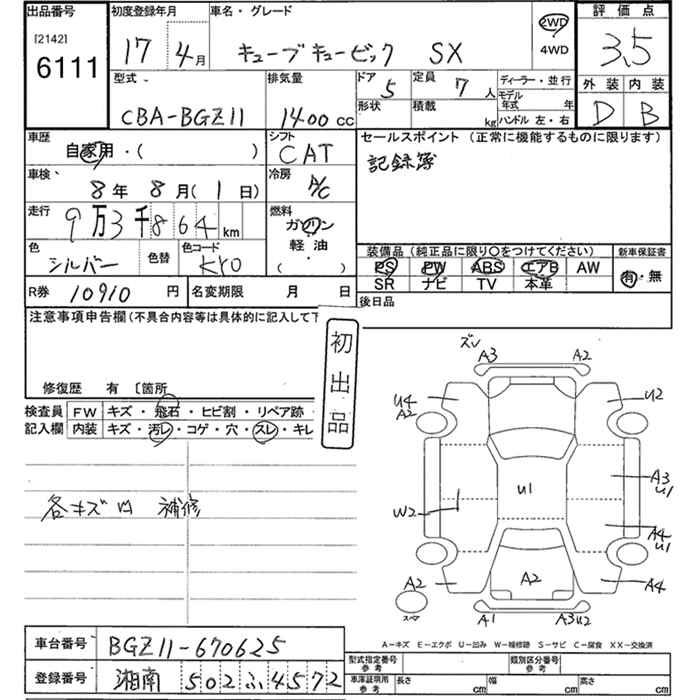 出品番号 初度登録年月 車名・グレード 評価点
[2142] 6111 17年 4月 キューブキュービック SX 2WD 4WD 3.5
型式 排気量 ドア 5 定員 7人 ディーラー・並行 外装 内装
CBA-BGZ11 1400cc 形状 積載 kg モデル年式 年 ハンドル 左・右 D B
車歴 自家用・( ) シフト CAT セールスポイント (正常に機能するものに限ります)
車検、 8年 8月( 1日) 冷房 A/C 記録簿
走行 9万3千864km 燃料 ガソリン 軽油 ( )
色 シルバー 色替 色コード KY0 装備品 (純正品に限り〇をつけてください) 新車保証書
PS PW ABS エアB AW 有・無
SR ナビ TV 本革
R券 10910円 名変期限 月 日 後日品
注意事項申告欄 (不具合内容等は具体的に記入して下
初出品
修復歴 有 〔箇所
検査員 FW キズ・飛石・ヒビ割・リペア跡・
記入欄 内装 キズ・汚レ・コゲ・穴・スレ・キレ
各キズ凹 補修
ズレ A3 A2
U4 A2 U2
W2 U1 A3 U1
A4 U1
A2 A2 A4
スペア A1 A3U2
A-キズ E-エクボ U-凹み W-補修跡 S-サビ C-腐食 XX-交換済
車台番号 BGZ11-670625
型式指定番号 参考 類別区分番号 参考
登録番号 湘南 502 ふ 4572
車庫証明用 参考 長さ cm 幅 cm 高さ cm